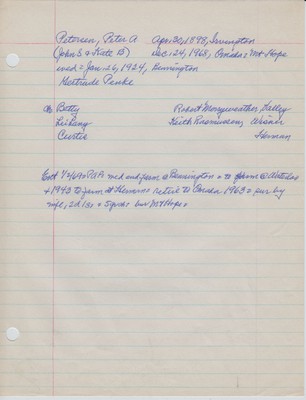 Petersen, Peter A Apr. 30, 1898, Irvington
(John S & Kate B) Dec. 24, 1968, Omaha = Mt Hope
wed = Jan. 26, 1924, Bennington
Gertrude Panke
Betty Robert Merryweather, Valley
Keith Rasmussen, Wisner
Curtis Herman
wed and farm @ Bennington = to farm @
+ 1943 to farm at Herman = retire to Omaha 1963 = sur by
wife, 2d 1s = 5 grch = bur Mt Hope =